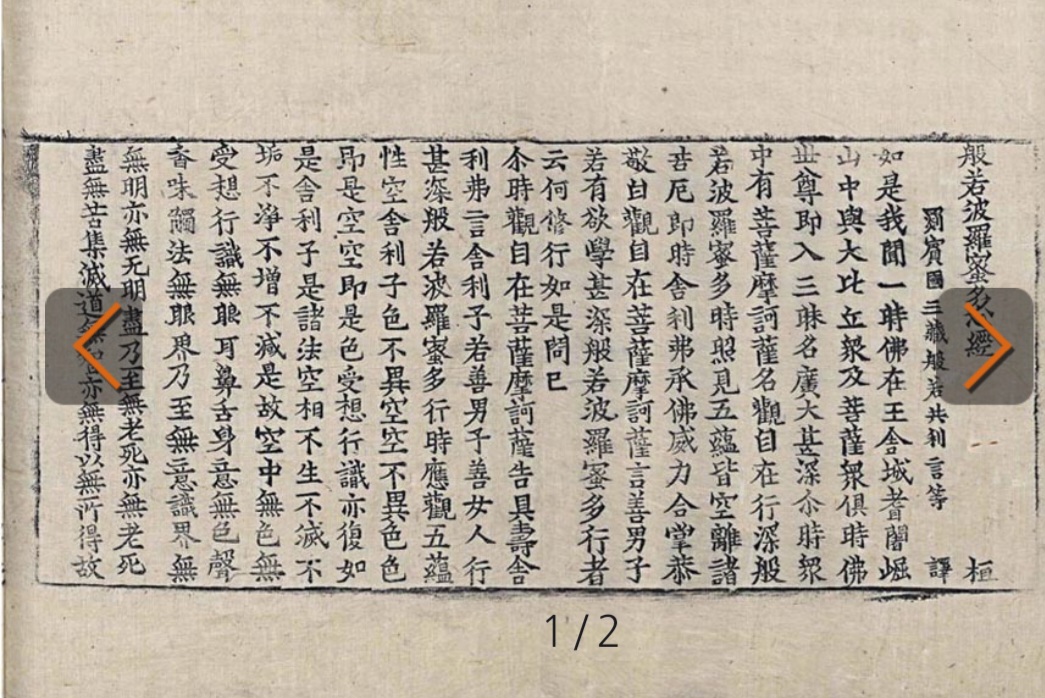 般若波羅蜜多心經 桓
罽賓國三藏般若共利言等 譯
如是我聞一時佛在王舍城耆闍崛
山中與大比丘衆及菩薩衆俱時佛
世尊即入三昧名廣大甚深尒時衆
中有菩薩摩訶薩名觀自在行深般
若波羅蜜多時照見五蘊皆空離諸
苦厄即時舍利弗承佛威力合掌恭
敬白觀自在菩薩摩訶薩言善男子
若有欲學甚深般若波羅蜜多行者
云何修行如是問已
尒時觀自在菩薩摩訶薩告具壽舍
利弗言舍利子若善男子善女人行
甚深般若波羅蜜多行時應觀五蘊
性空舍利子色不異空空不異色色
即是空空即是色受想行識亦復如
是舍利子是諸法空相不生不滅不
垢不淨不增不減是故空中無色無
受想行識無眼耳鼻舌身意無色聲
香味觸法無眼界乃至無意識界無
無明亦無无明盡乃至無老死亦無老死
盡無苦集滅道無智亦無得以無所得故
1/2